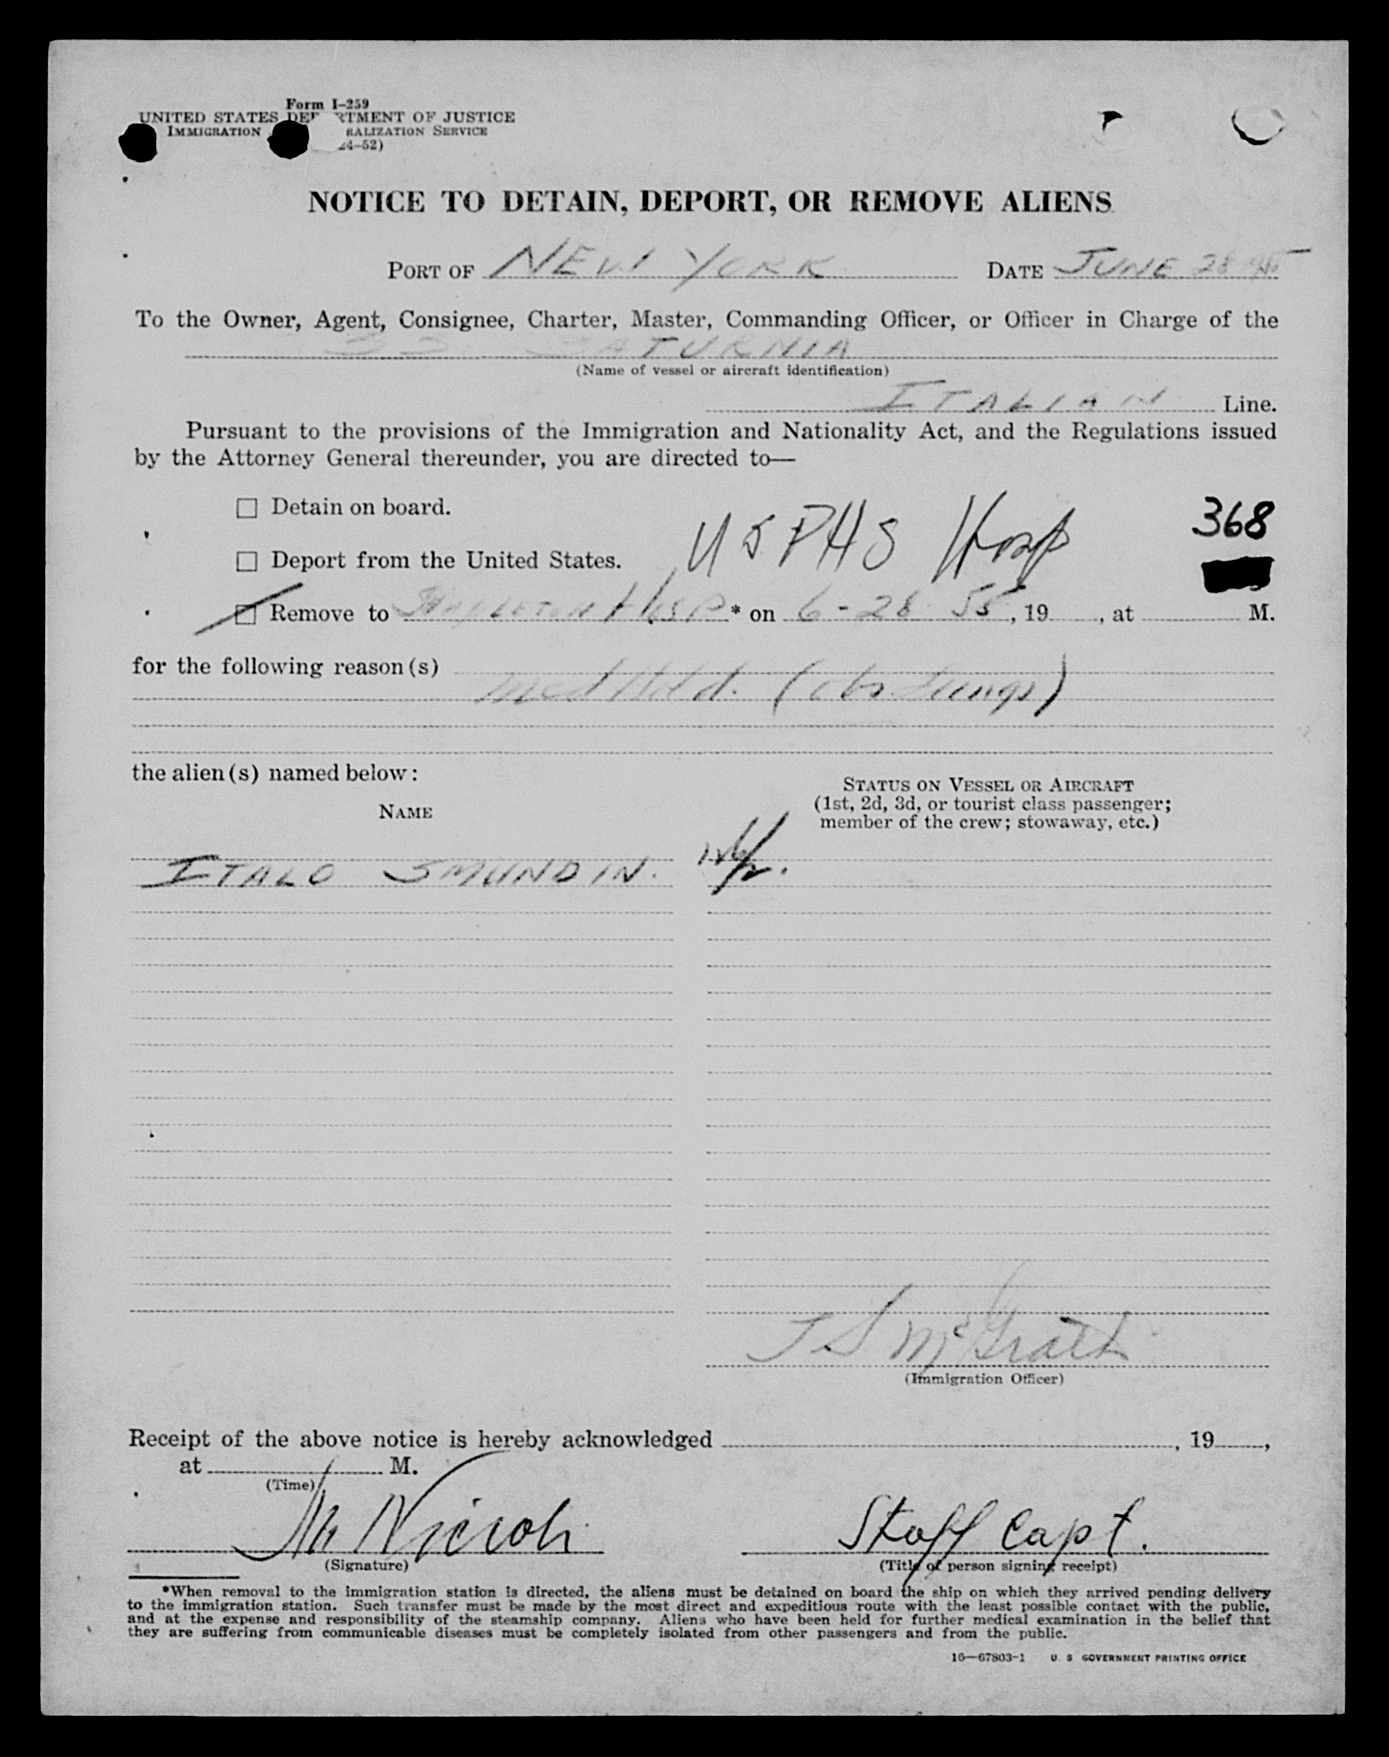 Form I-259
UNITED STATES DEP RTMENT OF JUSTICE
IMMIGRATION RALIZATION SERVICE
24-52)
NOTICE TO DETAIN, DEPORT, OR REMOVE ALIENS
PORT OF NEW YORK DATE JUNE 28
To the Owner, Agent, Consignee, Charter, Master, Commanding Officer, or Officer in Charge of the
SS SATURNIA
(Name of vessel or aircraft identification)
ITALIAN Line.
Pursuant to the provisions of the Immigration and Nationality Act, and the Regulations issued
by the Attorney General thereunder, you are directed to—
☐ Detain on board.
USPHS Hosp 368
☐ Deport from the United States.
☐ Remove to STAPLETON HOSP* on 6-28 55, 19 , at M.
for the following reason(s)
Med Hold. (obs. lungs)
the alien(s) named below:
STATUS ON VESSEL OR AIRCRAFT
NAME (1st, 2d, 3d, or tourist class passenger;
member of the crew; stowaway, etc.)
ITALO SMUNDIN.
J S McGrath
(Immigration Officer)
Receipt of the above notice is hereby acknowledged , 19 ,
at M.
(Time)
Staff Capt.
(Signature) (Title of person signing receipt)
*When removal to the immigration station is directed, the aliens must be detained on board the ship on which they arrived pending delivery
to the immigration station. Such transfer must be made by the most direct and expeditious route with the least possible contact with the public,
and at the expense and responsibility of the steamship company. Aliens who have been held for further medical examination in the belief that
they are suffering from communicable diseases must be completely isolated from other passengers and from the public.
16—67803-1 U. S. GOVERNMENT PRINTING OFFICE